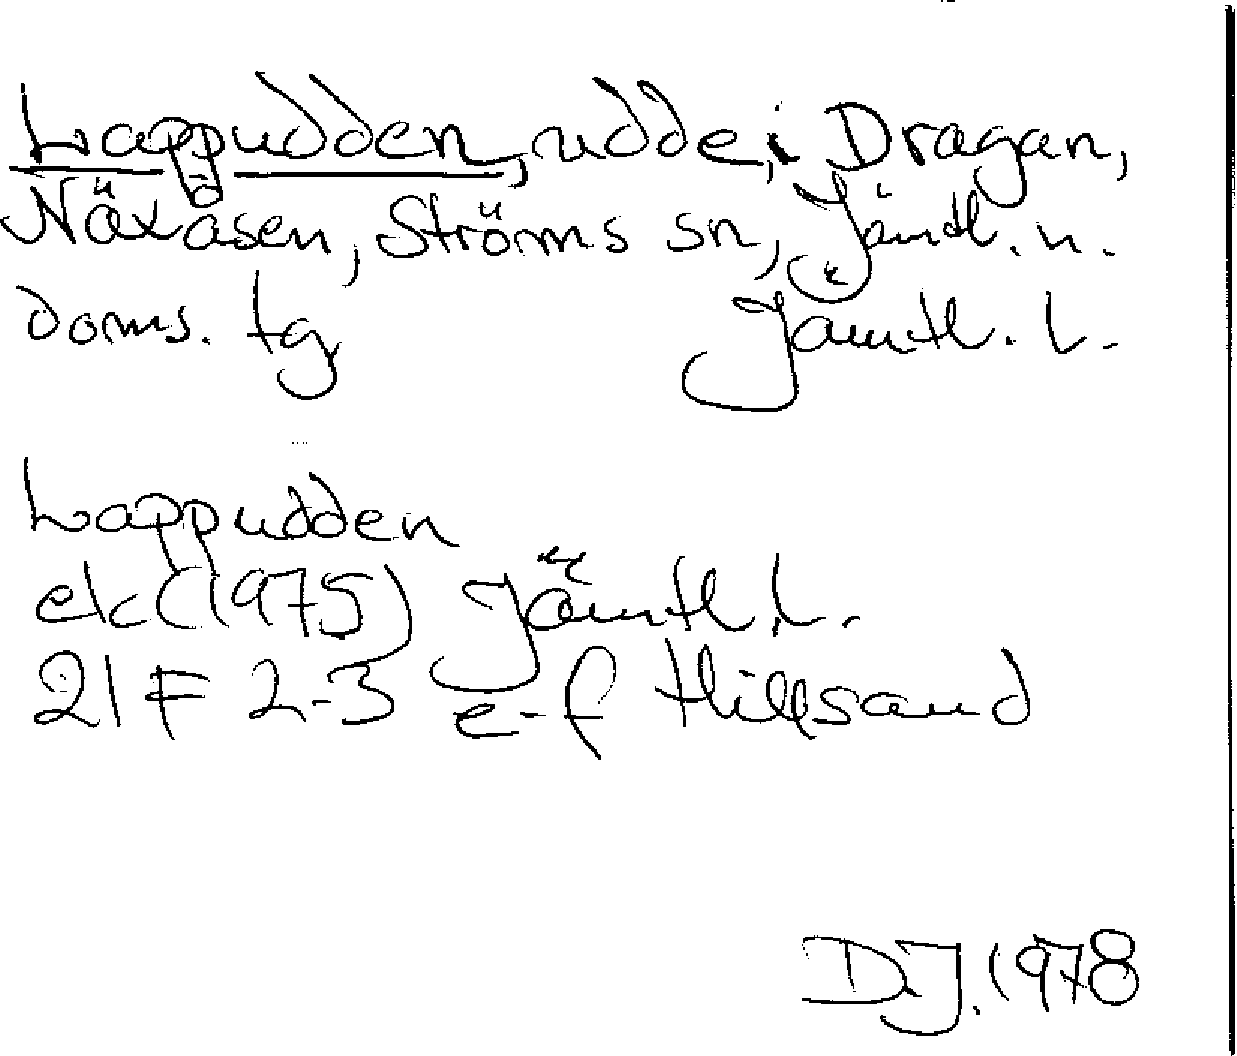 Lappudden, udde i Dragan,
Näxåsen, Ströms sn, Jämtl. n.
doms. tg Jämtl. l.
Lappudden
ek (1975) Jämtl. l.
21 F 2-3 e-f Hillsand
D.J. 1978